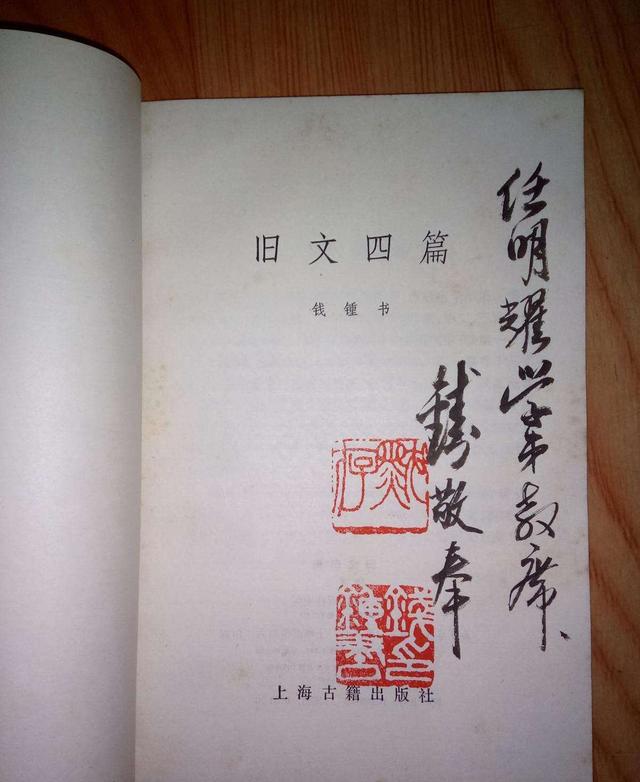 旧文四篇
钱锺书
任明耀学弟教席、
敬奉
默存
錢印鍾書
上海古籍出版社